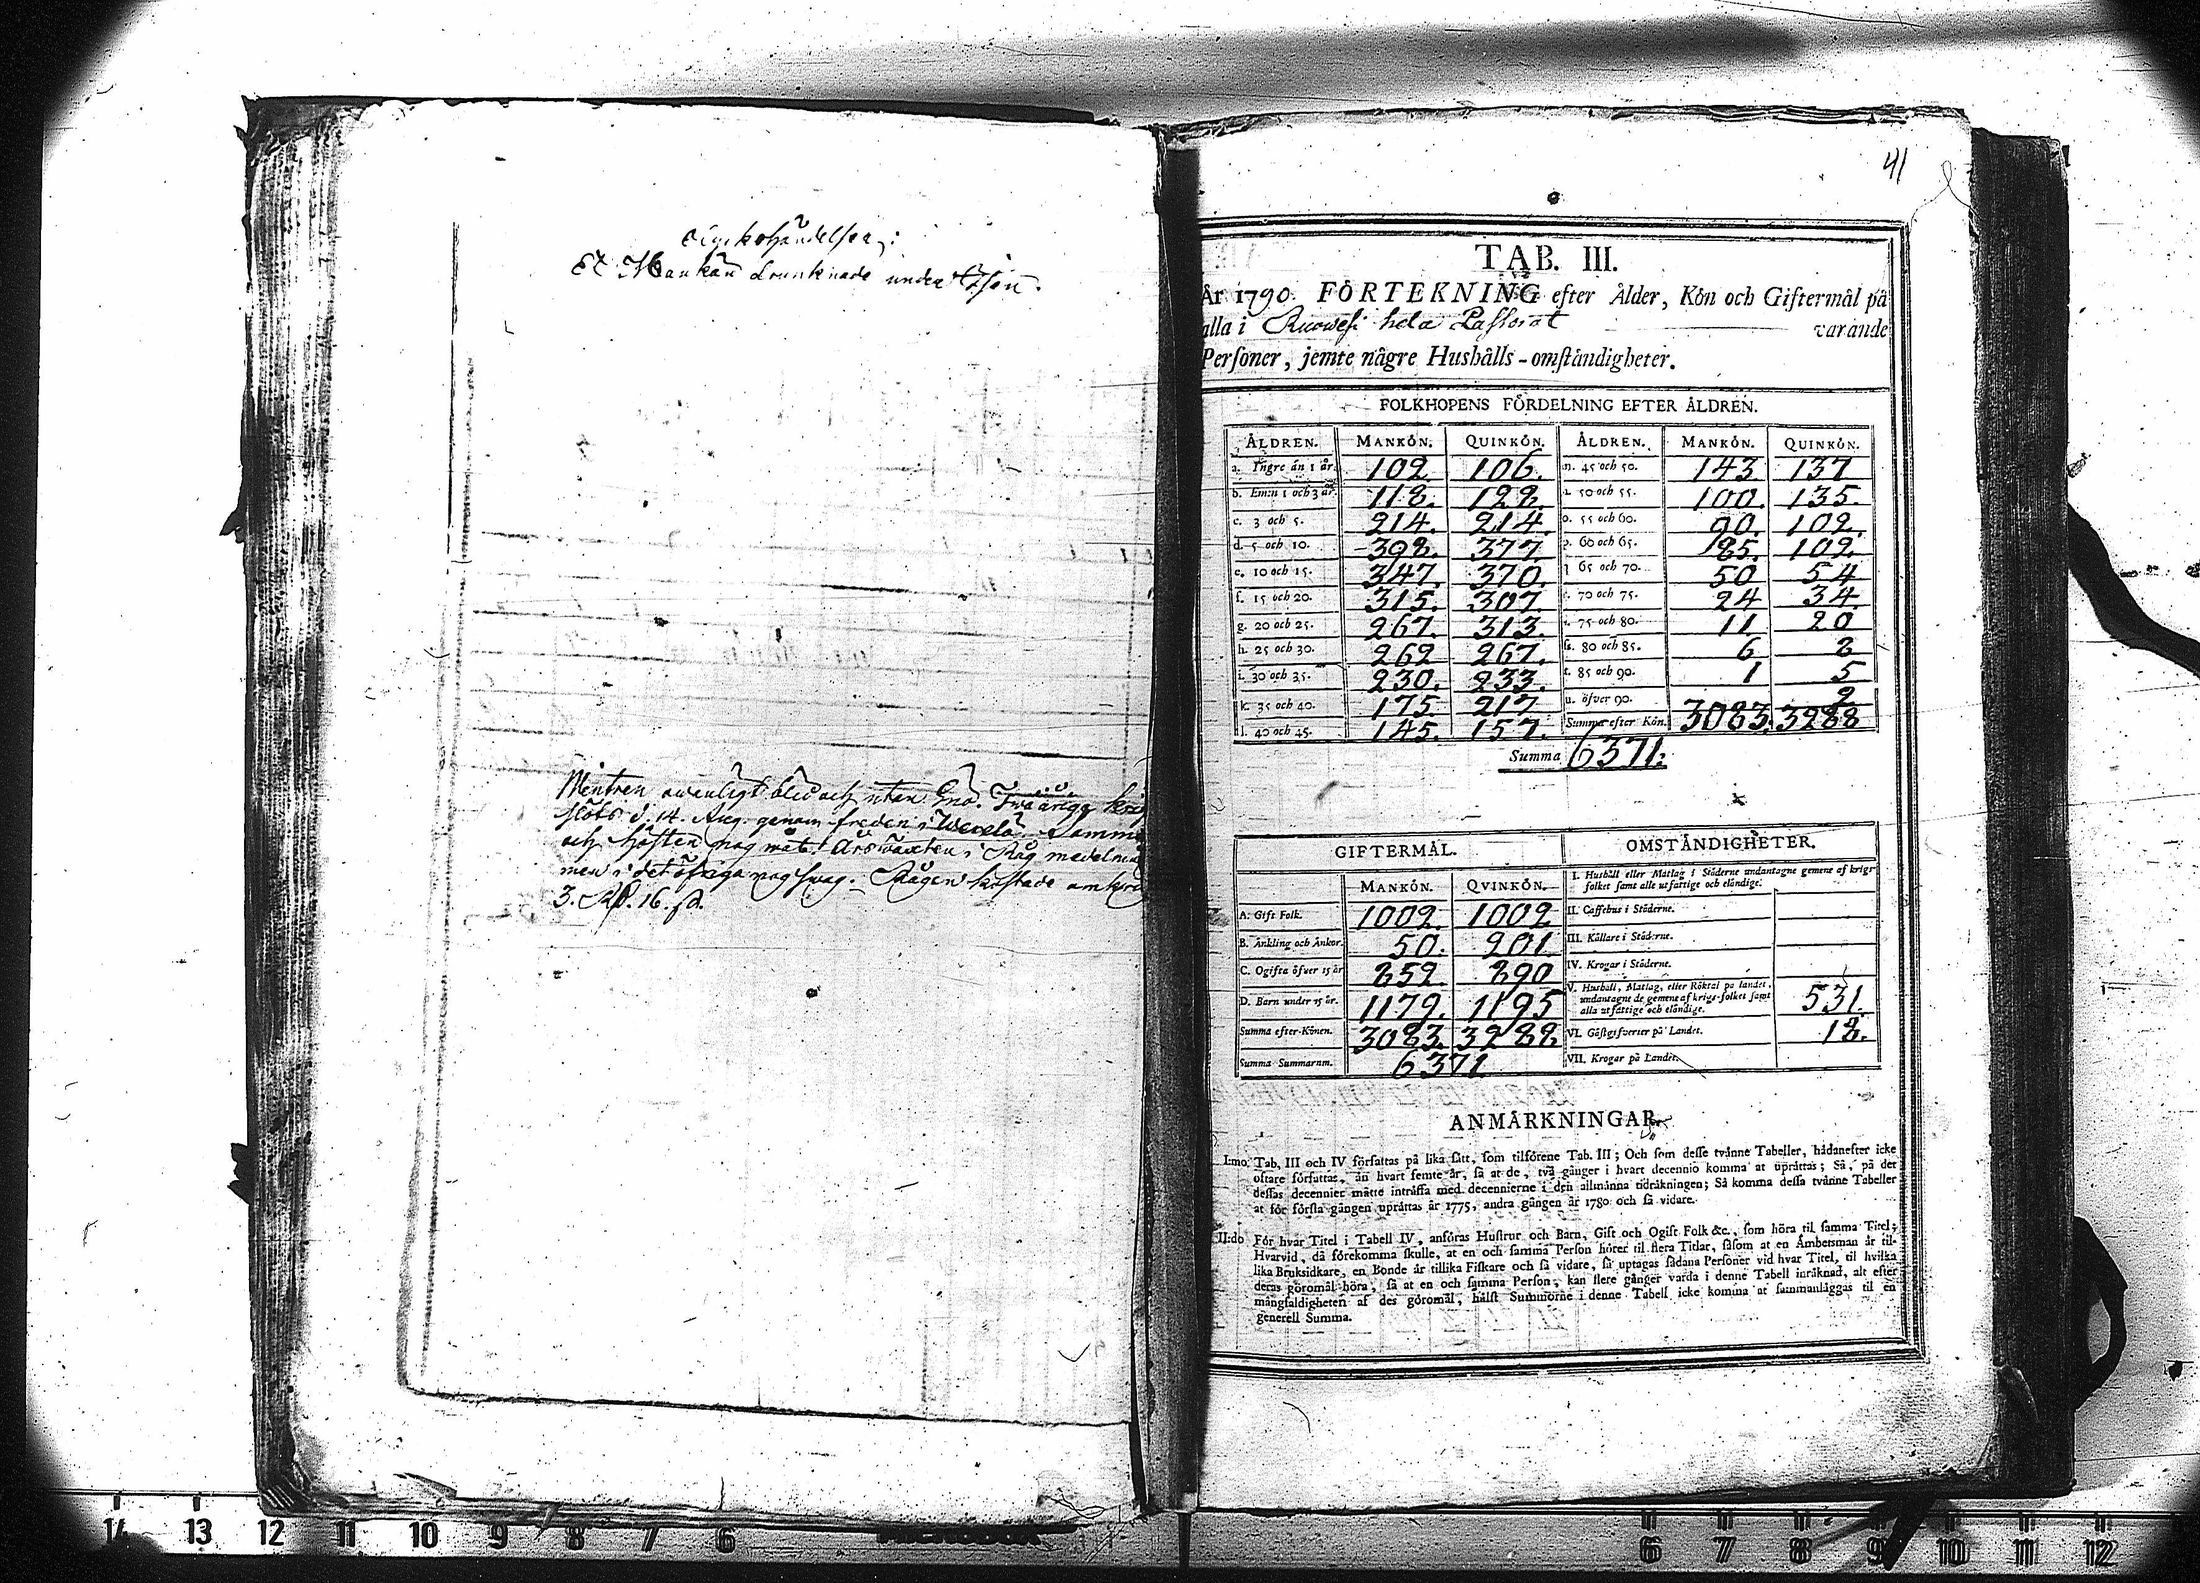 Olyckshändelser:
Et Mankön drunknade under Isen.
Wintren owanligt blid och utan Snö. Twååriga krig
slöts d. 14. Aug. genom freden i Werelä. Somma
och hösten nog wåt. Årswäxten i Råg medelmå
men i det öfriga nog swag. Rågen kostade omkri
3. Rd. 16. s.
41
TAB. III.
År 1790. FÖRTEKNING efter Ålder, Kön och Giftermål på
alla i Ruowesi hela Pastorat varande
Personer, jemte någre Hushålls-omständigheter.
FOLKHOPENS FÖRDELNING EFTER ÅLDREN.
ÅLDREN. MANKÖN. QUINKÖN. ÅLDREN. MANKÖN. QUINKÖN.
a. Yngre än 1 år. 102 106. m. 45 och 50. 143. 137
b. Em:n 1 och 3 år. 118. 128. n. 50 och 55. 100. 135.
c. 3 och 5. 214. 214. o. 55 och 60. 90. 102.
d. 5 och 10. 398. 377. p. 60 och 65. 85. 109.
e. 10 och 15. 347. 370. q. 65 och 70. 50 54
f. 15 och 20. 315. 307. r. 70 och 75. 24 34
g. 20 och 25. 267. 313. s. 75 och 80. 11 20
h. 25 och 30. 262 267. ſs. 80 och 85. 6 8
i. 30 och 35. 230. 233. t. 85 och 90. 1 5
k. 35 och 40. 175 217 u. öfver 90. 2
l. 40 och 45. 145. 157. Summa efter Kön. 3083. 3288
Summa 6371.
GIFTERMÅL. OMSTÄNDIGHETER.
MANKÖN. QVINKÖN.
I. Hushåll eller Matlag i Städerne undantagne gemene af krigs-
folket samt alle utfattige och eländige.
A. Gift Folk. 1002. 1002 II. Caffehus i Städerne.
B. Änkling och Änkor. 50. 201. III. Källare i Städerne.
C. Ogifta öfver 15 år 852. 890 IV. Krogar i Städerne.
D. Barn under 15 år. 1179. 1195 V. Hushåll, Matlag, eller Röktal på landet,
undantagne de gemene af krigs-folket samt
alla utfattige och eländige. 531.
Summa efter Könen. 3083. 3288. VI. Gästgifverier på Landet. 18.
Summa Summarum. 6371 VII. Krogar på Landet.
ANMÄRKNINGAR.
I:mo. Tab. III och IV författas på lika sätt, som tilförene Tab. III; Och som desse tvänne Tabeller, hädanefter icke
oftare författas, än hvart femte år, så at de, två gånger i hvart decennio komma at uprättas; Så, på det
dessas decennier måtte inträffa med decennierne i den allmänna tidräkningen; Så komma dessa tvänne Tabeller
at för första gången uprättas år 1775, andra gången år 1780 och så vidare.
II:do För hvar Titel i Tabell IV, anföras Hustrur och Barn, Gift och Ogift Folk &c., som höra til samma Titel;
Hvarvid, då förekomma skulle, at en och samma Person hörer til flera Titlar, såsom at en Ämbetsman är til-
lika Bruksidkare, en Bonde är tillika Fiskare och så vidare, så uptagas sådana Personer vid hvar Titel, til hvilka
deras göromål höra, så at en och samma Person, kan flere gånger varda i denne Tabell inräknad, alt efter
mångfaldigheten af des göromål, hälst Summorne i denne Tabell icke komma at sammanläggas til en
generell Summa.
14 13 12 11 10 9 8 7 6
6 7 8 9 10 11 12